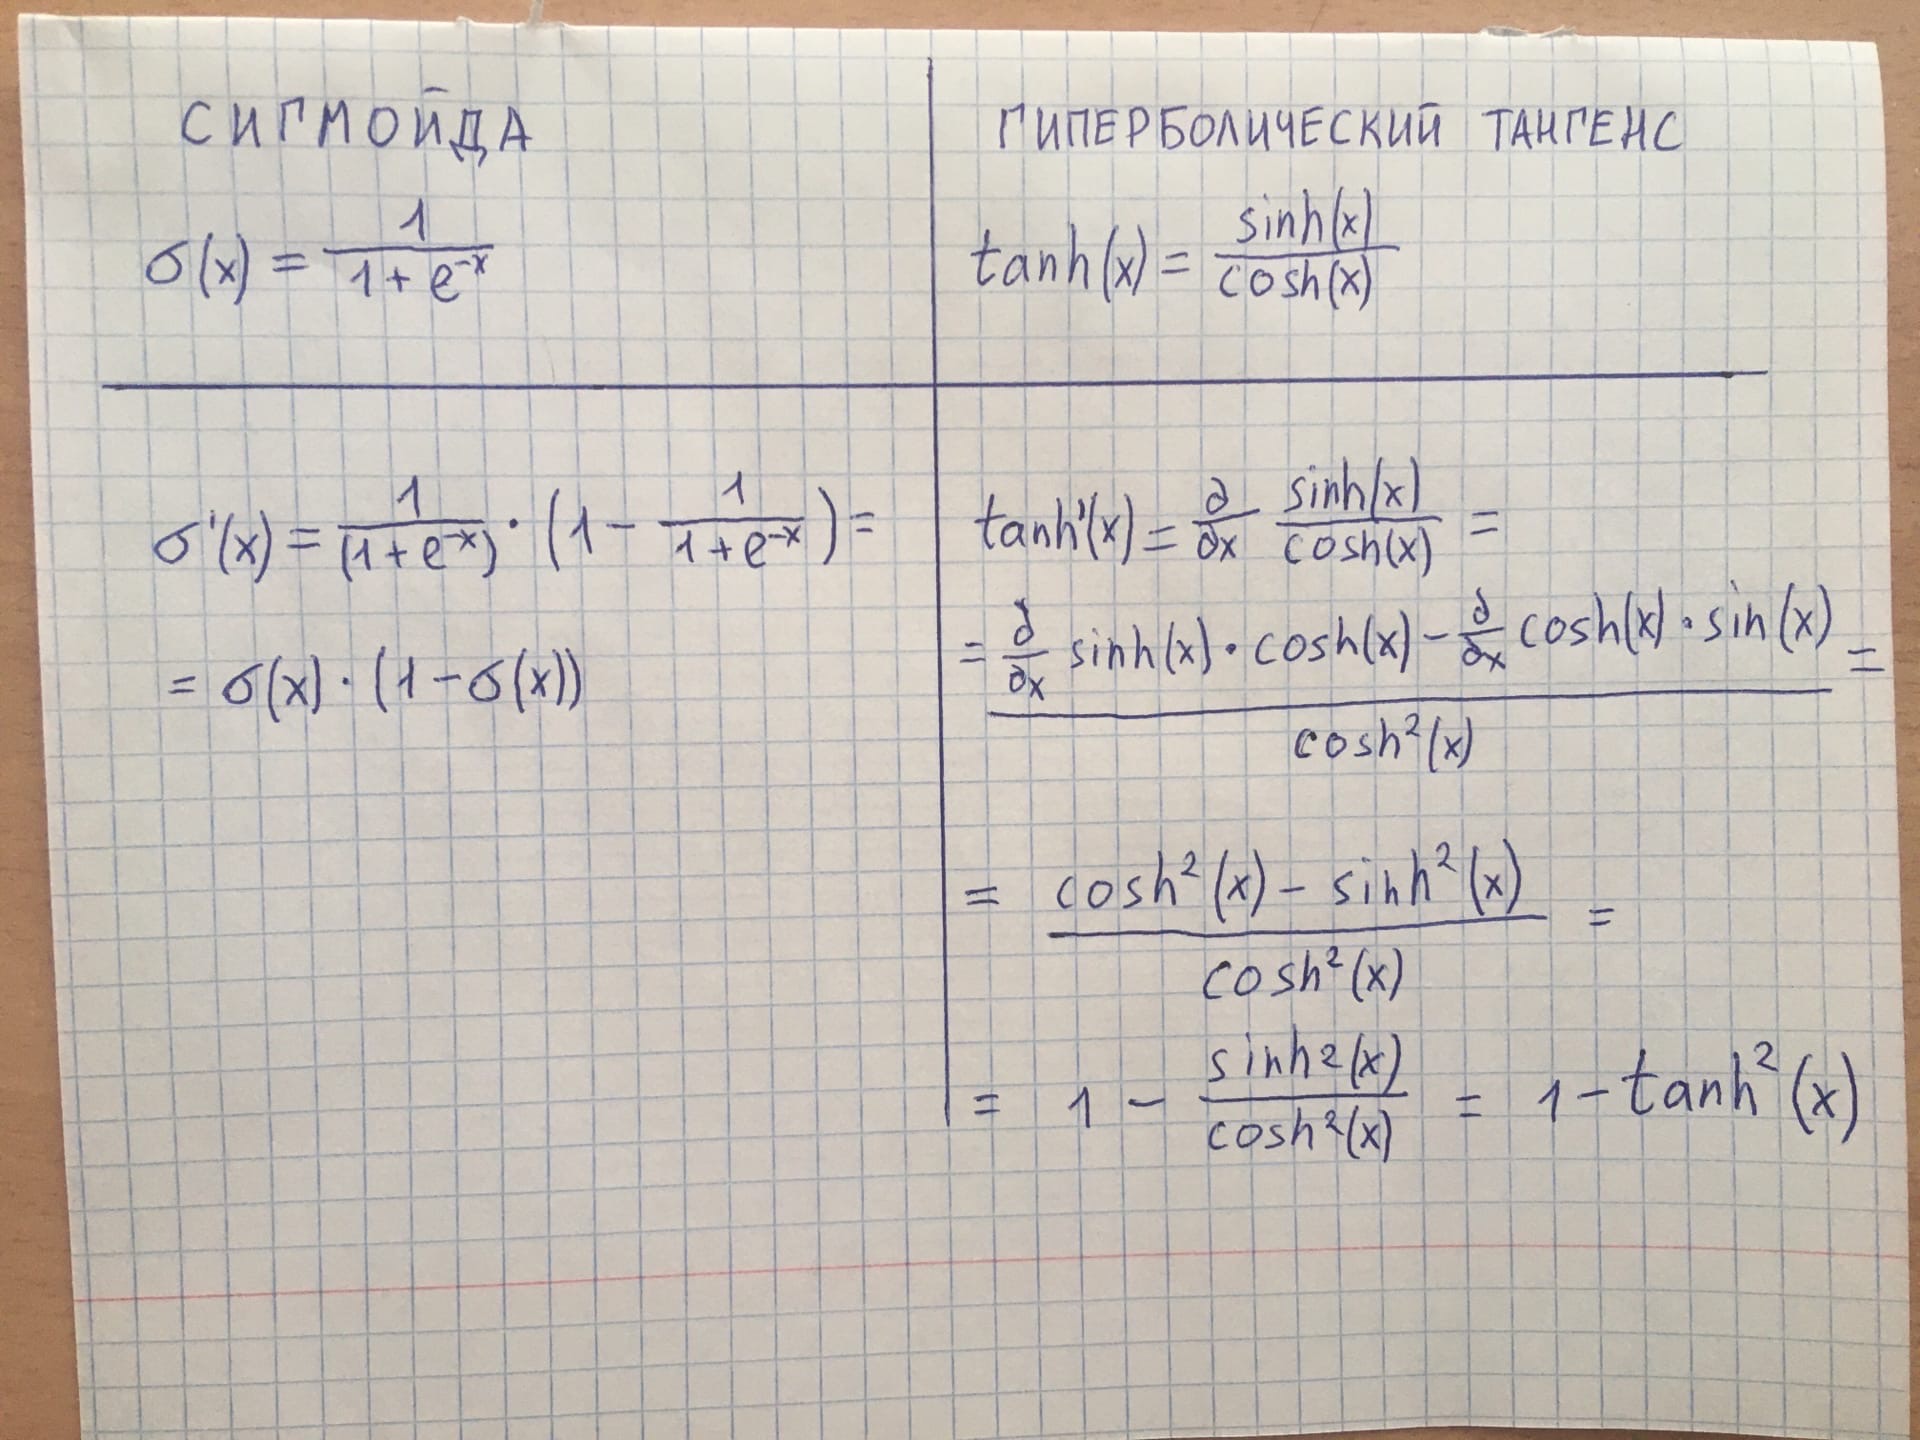 СИГМОЙДА
σ(x) = 1 / (1 + e^-x)
σ'(x) = 1 / (1 + e^-x) · (1 - 1 / (1 + e^-x)) =
= σ(x) · (1 - σ(x))
ГИПЕРБОЛИЧЕСКИЙ ТАНГЕНС
tanh(x) = sinh(x) / cosh(x)
tanh'(x) = ∂/∂x sinh(x) / cosh(x) =
= (∂/∂x sinh(x) · cosh(x) - ∂/∂x cosh(x) · sin(x)) / cosh²(x) =
= (cosh²(x) - sinh²(x)) / cosh²(x) =
= 1 - sinh2(x) / cosh²(x) = 1 - tanh²(x)